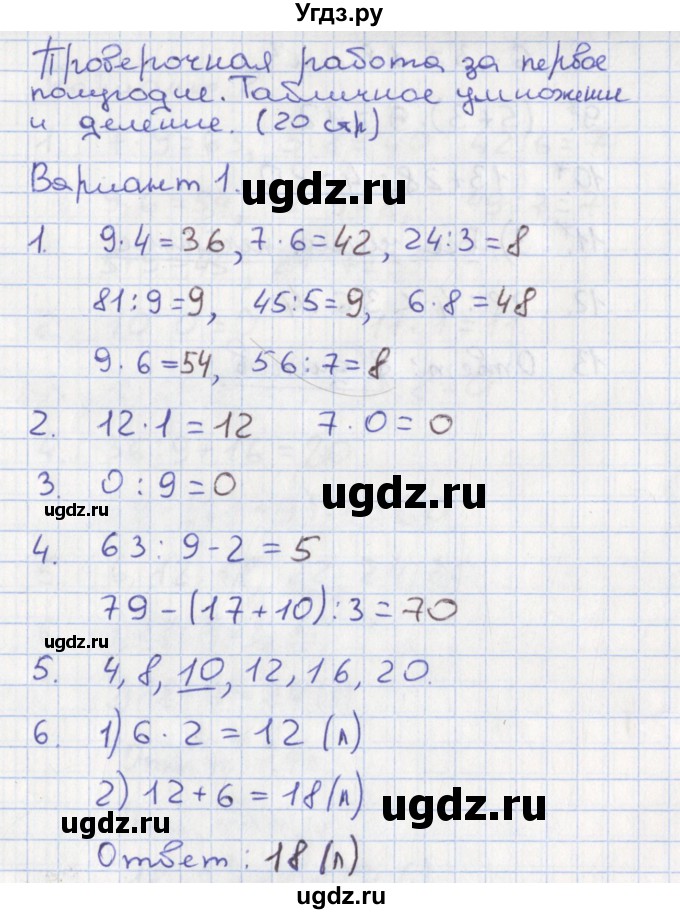 Угдз.ру
Проверочная работа за первое
полугодие. Табличное умножение
и деление. (20 стр)
Вариант 1.
ugdz.ru
1. 9·4=36, 7·6=42, 24:3=8
81:9=9, 45:5=9, 6·8=48
9·6=54, 56:7=8
2. 12·1=12 7·0=0
ugdz.ru
3. 0:9=0
ugdz.ru
4. 63:9-2=5
79-(17+10):3=70
ugdz.ru
5. 4, 8, 10, 12, 16, 20.
6. 1) 6·2=12 (л)
2) 12+6=18 (л)
ugdz.ru
ugdz.ru
Ответ: 18 (л)
ugdz.ru